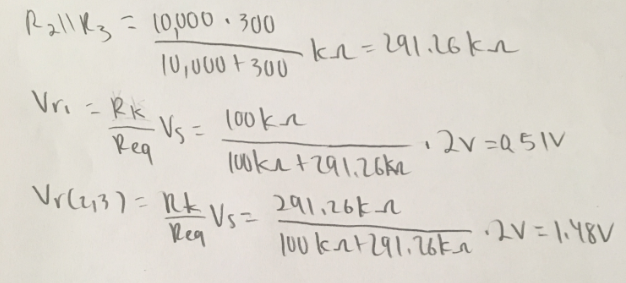 R₂||R₃ = 10,000 · 300 / 10,000 + 300 kΩ = 291.26 kΩ
Vr₁ = Rk / Req Vs = 100kΩ / 100kΩ + 291.26kΩ · 2V = 0.51V
Vr(2,3) = Rk / Req Vs = 291.26kΩ / 100kΩ + 291.26kΩ · 2V = 1.48V